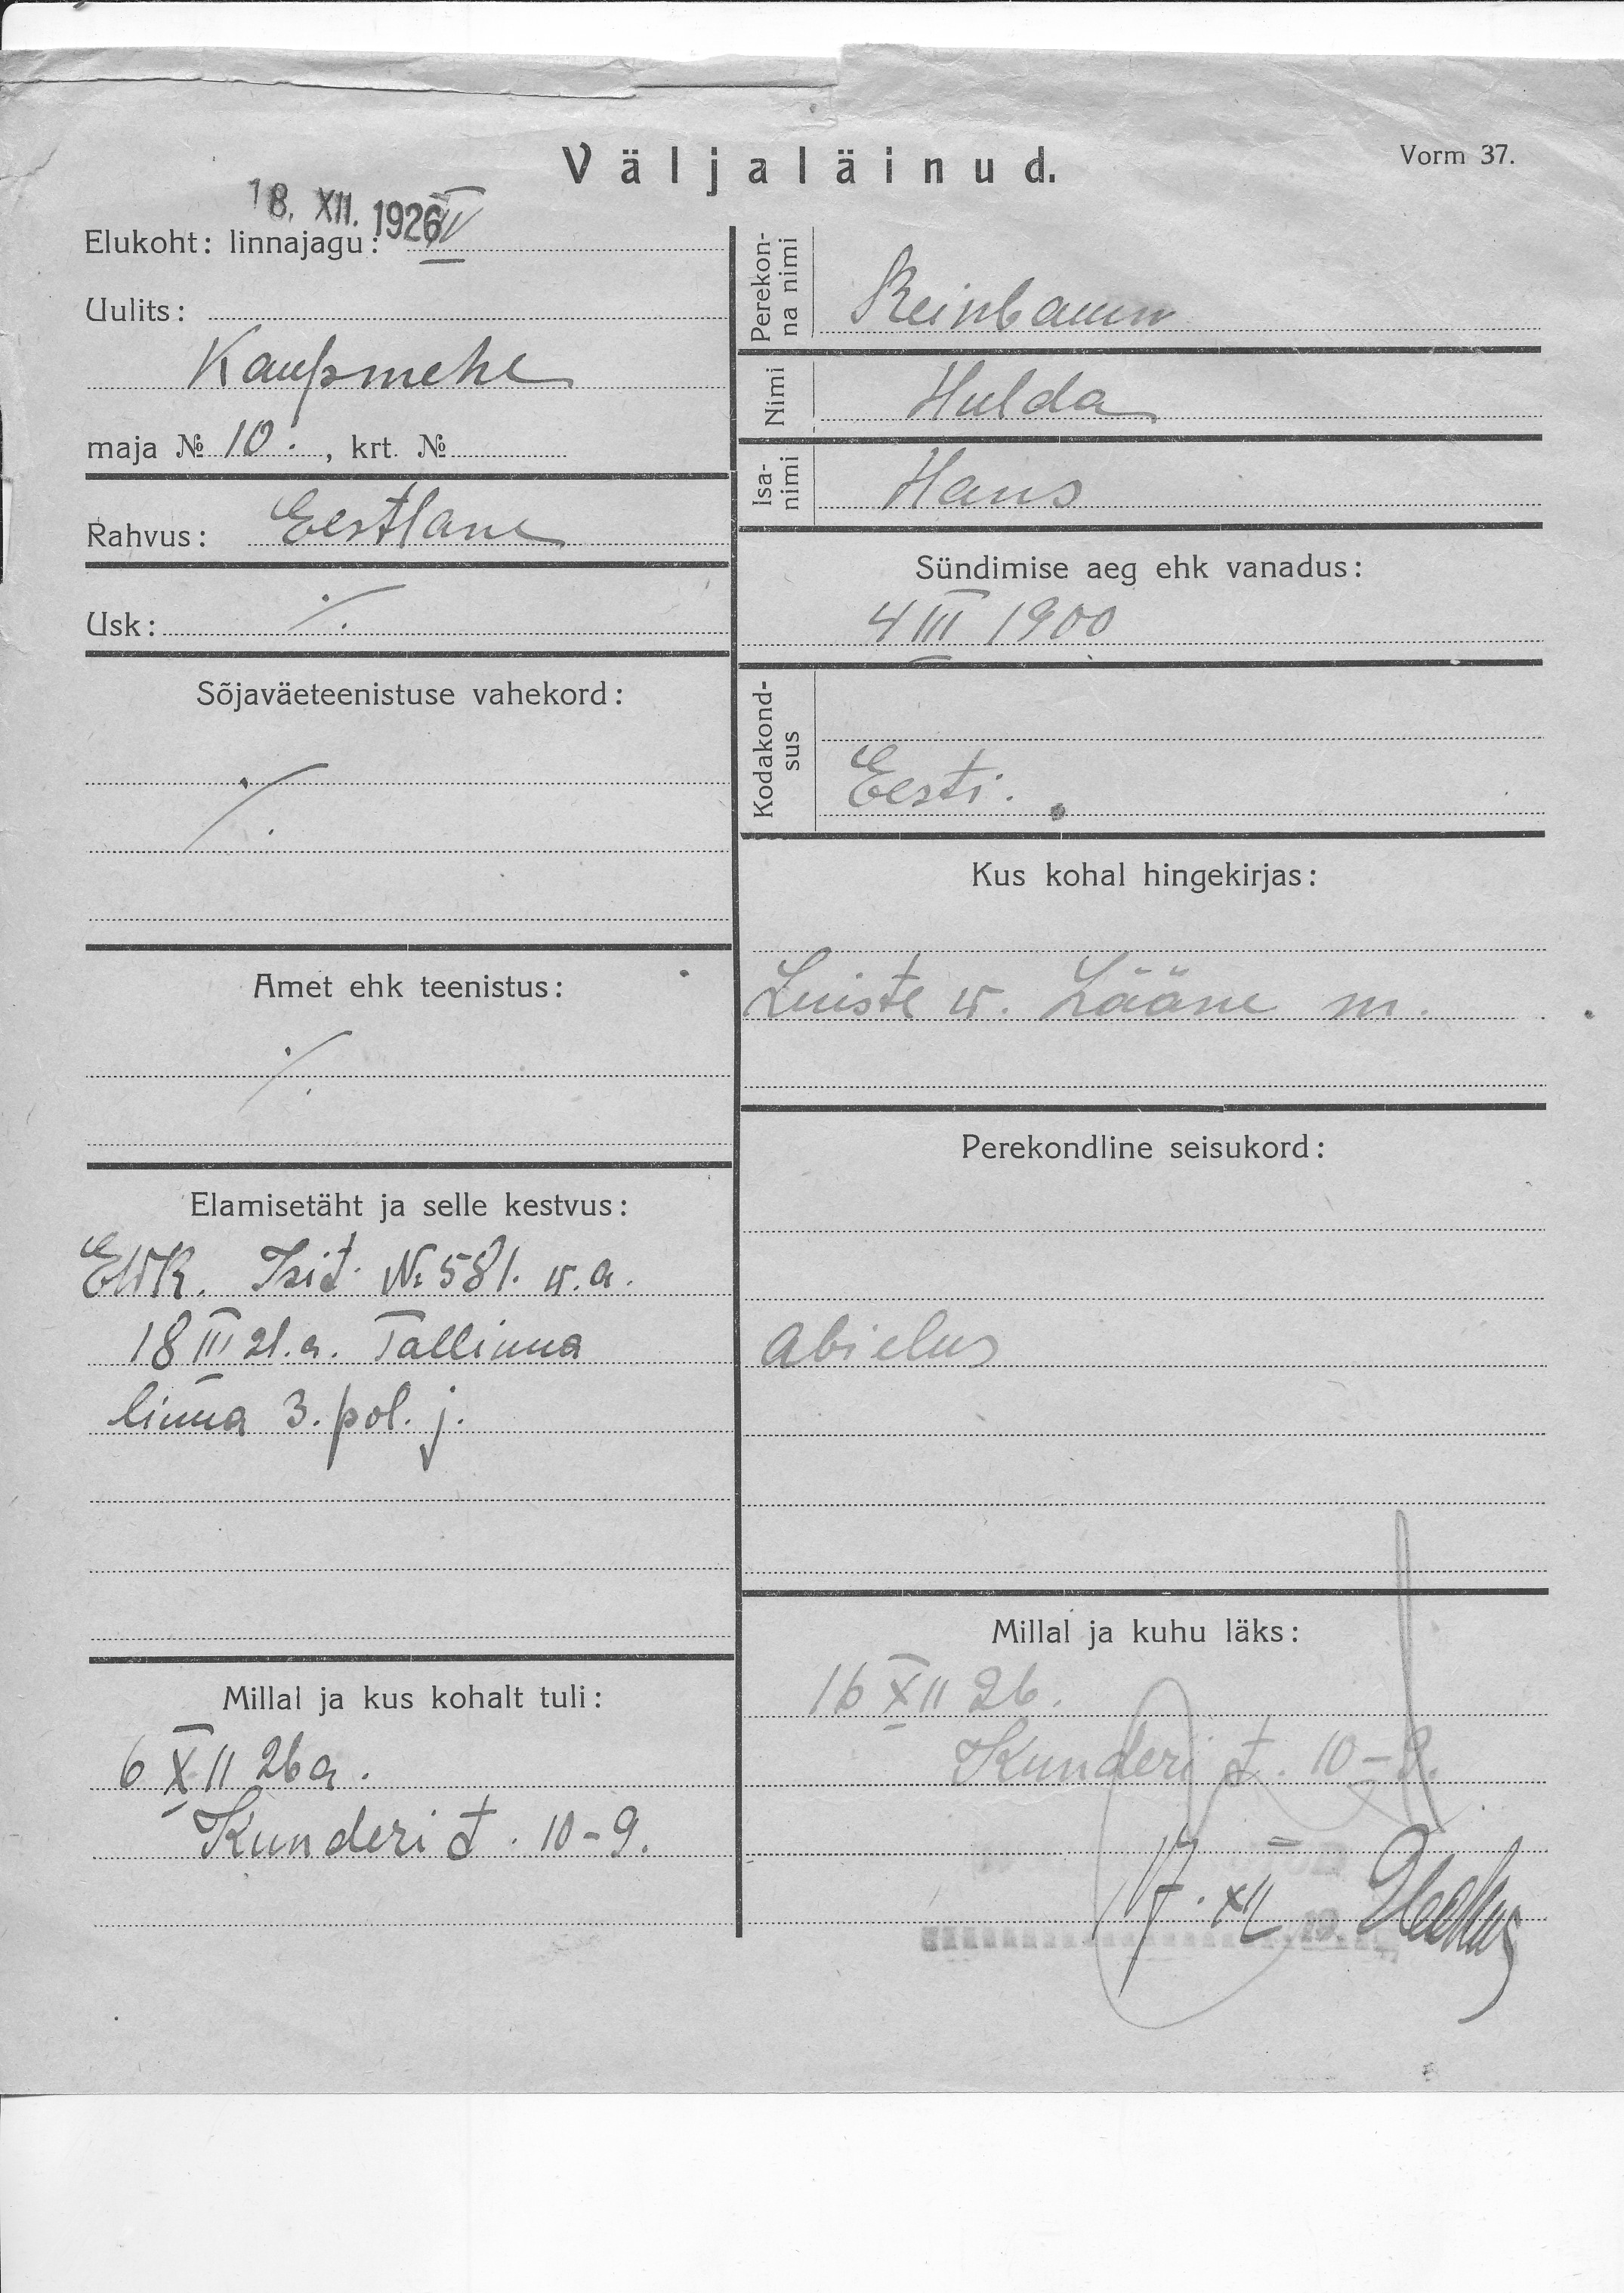 Väljaläinud.
Vorm 37.
18. XII. 1926
Elukoht: linnajagu: IV
Uulits:
Kaupmehe
maja № 10. , krt. №
Rahvus: Eestlane
Usk: ./.
Sõjaväeteenistuse vahekord:
./.
Amet ehk teenistus:
./.
Elamisetäht ja selle kestvus:
EWK. Tsit. № 581. w.a.
18 III 21.a. Tallinna
linna 3. pol. j.
Millal ja kus kohalt tuli:
6 XII 26 a.
Kunderi t. 10-9.
Perekon-
na nimi
Reinbaum
Nimi
Hulda
Isa-
nimi
Hans
Sündimise aeg ehk vanadus:
4 III 1900
Kodakond-
sus
Eesti.
Kus kohal hingekirjas:
Luiste w. Lääne m.
Perekondline seisukord:
abielus
Millal ja kuhu läks:
16 XII 26.
Kunderi t. 10-9.
17. XII